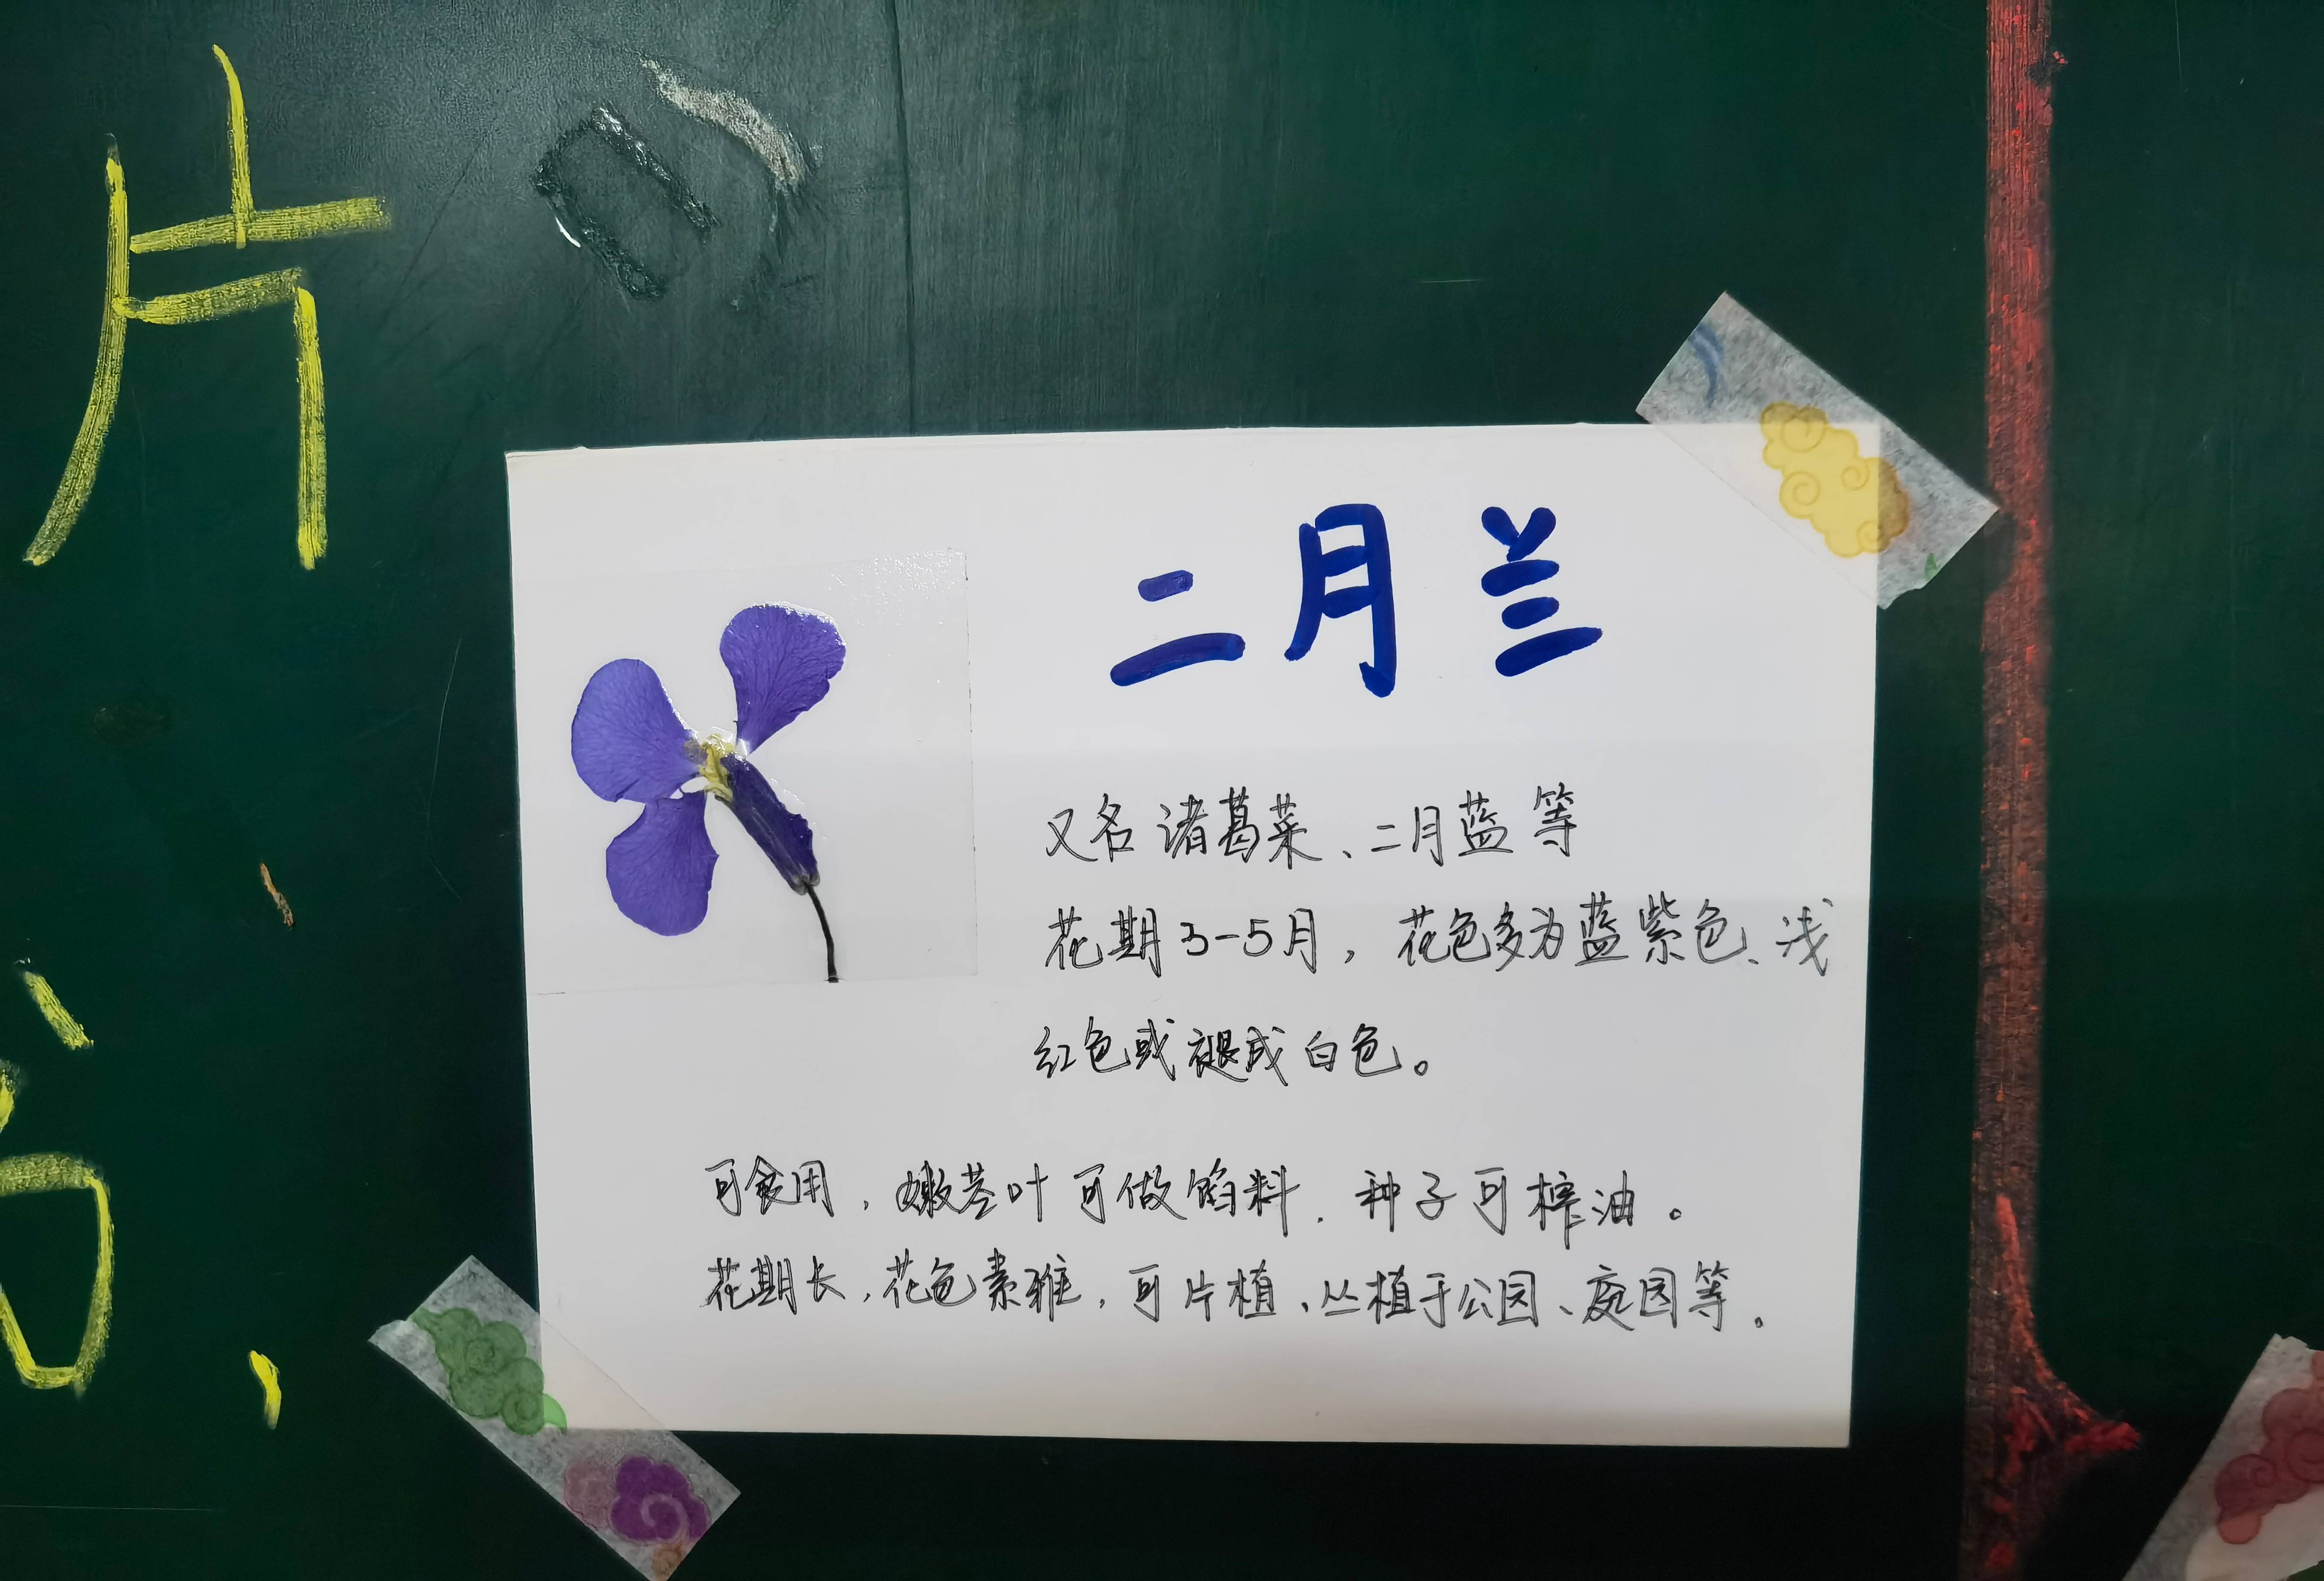 片
二月兰
又名诸葛菜、二月蓝等
花期3-5月，花色多为蓝紫色、浅
红色或褪成白色。
可食用，嫩茎叶可做馅料，种子可榨油。
花期长，花色素雅，可片植、丛植于公园、庭园等。